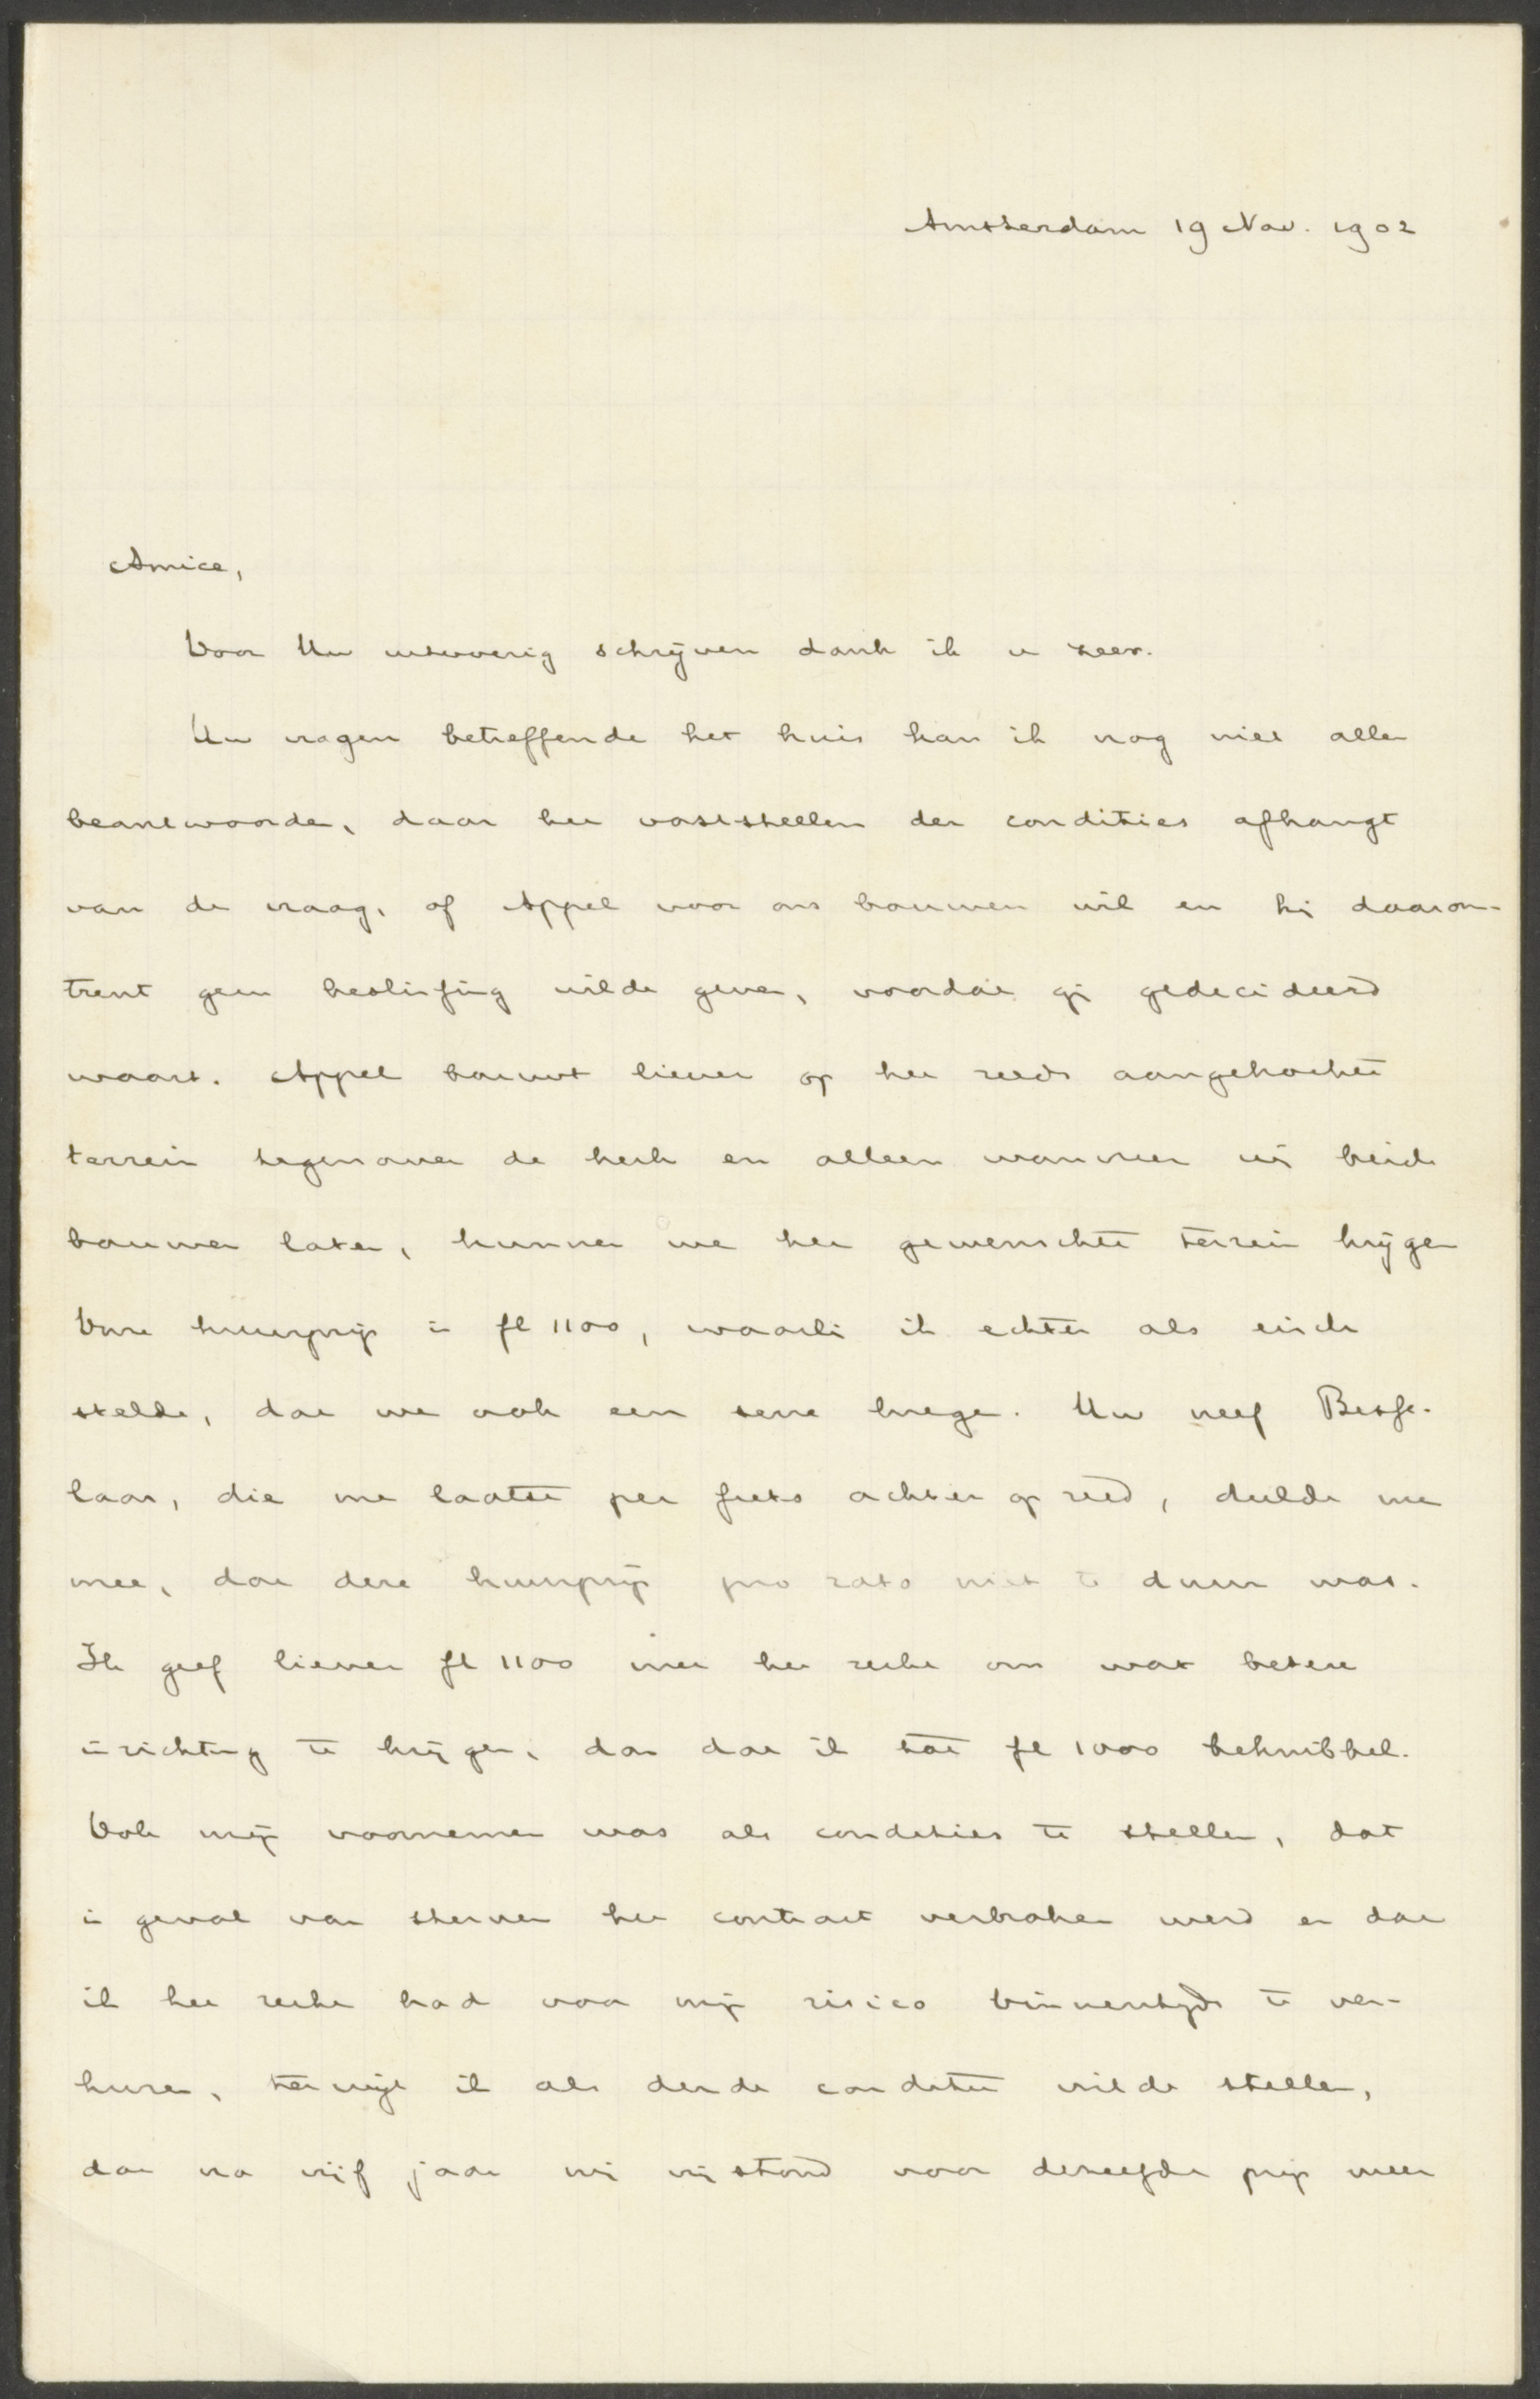 Amsterdam 19 Nov. 1902
Amice,
Voor Uw uitvoerig schrijven dank ik u zeer.
Uw vragen betreffende het huis kan ik nog niet alle
beantwoorden, daar het vaststellen der condities afhangt
van de vraag, of Appel voor ons bouwen wil en hij daarom-
trent geen beslissing wilde geven, voordat gij gedecideerd
waart. Appel bouwt liever op het reeds aangekochte
terrein tegenover de kerk en alleen wanneer wij beide
bouwen laten, kunnen we het gewenschte terrein krijgen
Onze huurprijs is fl 1100, waarbij ik echter als eisch
stelde, dat we ook een serre kregen. Uw neef Besse-
laar, die me laatst per fiets achter op reed, deelde me
mee, dat deze huurprijs pro rato niet te duur was.
Ik geef liever fl 1100 met het recht om wat betere
inrichting te krijgen, dan dat ik tot fl 1000 beknibbel.
Ook mijn voornemen was als condities te stellen, dat
in geval van sterven het contract verbroken werd en dat
ik het recht had voor mijn risico binnentijds te ver-
huren, terwijl ik als derde conditie wilde stellen,
dat na vijf jaar mij vrij stond voor dezelfde prijs weer